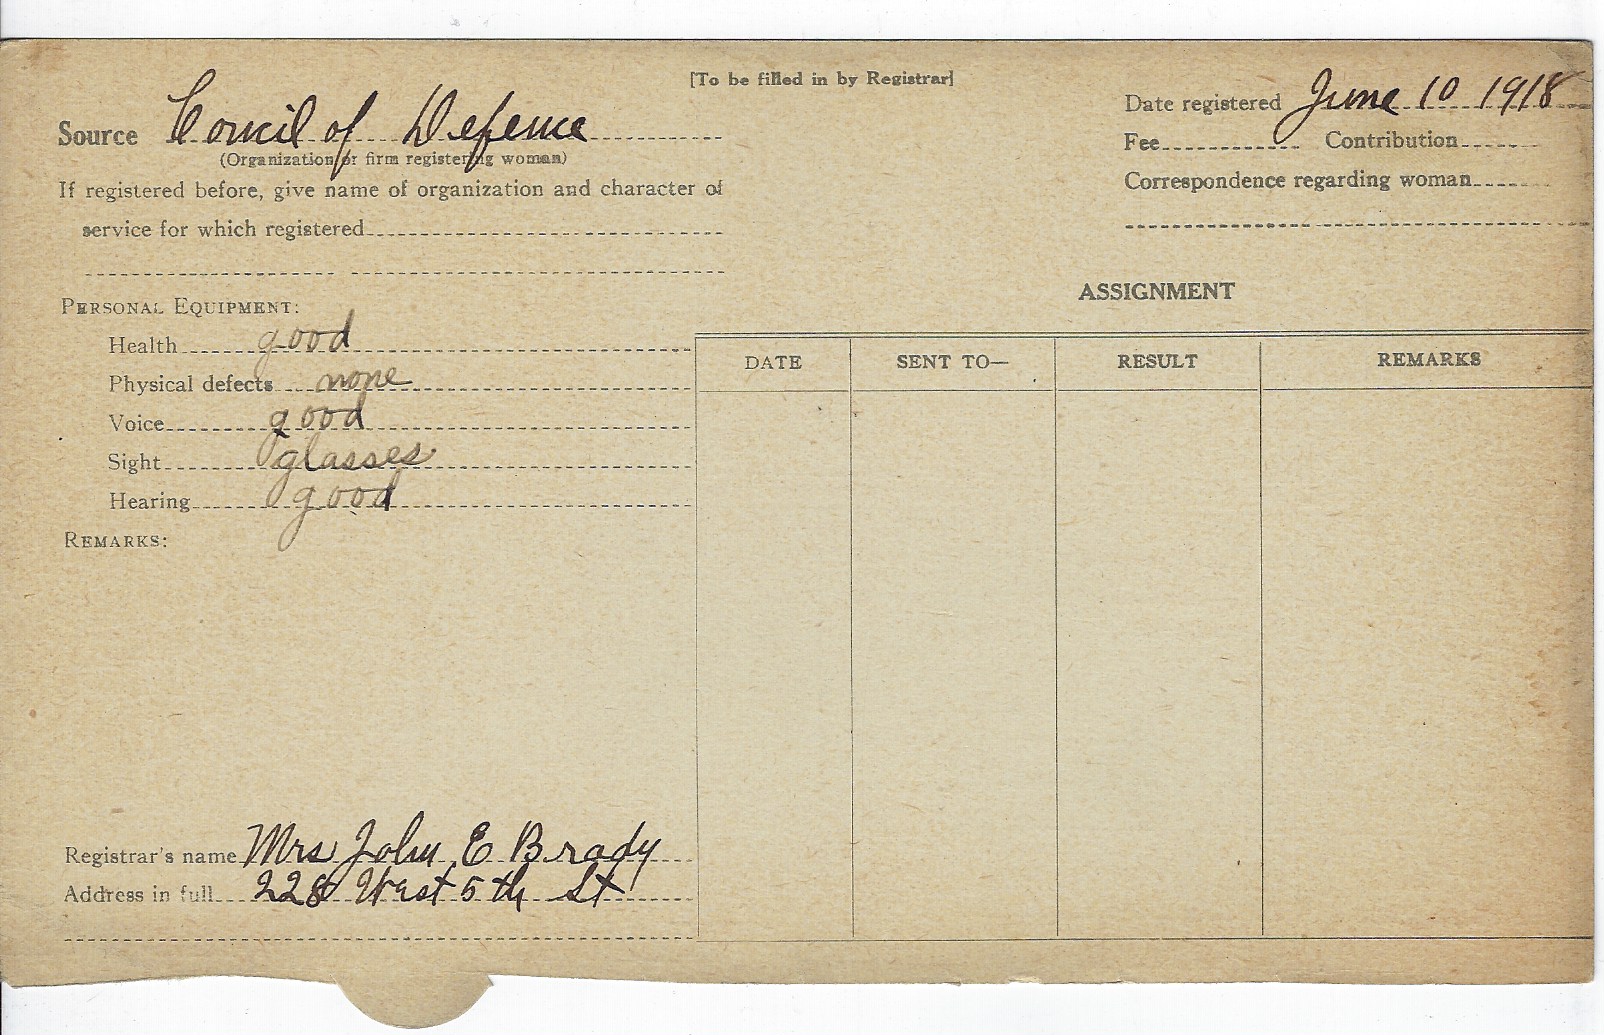 [To be filled in by Registrar]
Source Concil of Defence
(Organization or firm registering woman)
If registered before, give name of organization and character of
service for which registered
Date registered June 10 1918
Fee Contribution
Correspondence regarding woman
PERSONAL EQUIPMENT:
Health good
Physical defects none
Voice good
Sight glasses
Hearing good
REMARKS:
ASSIGNMENT
DATE SENT TO— RESULT REMARKS
Registrar's name Mrs John E Brady
Address in full 228 West 5th St